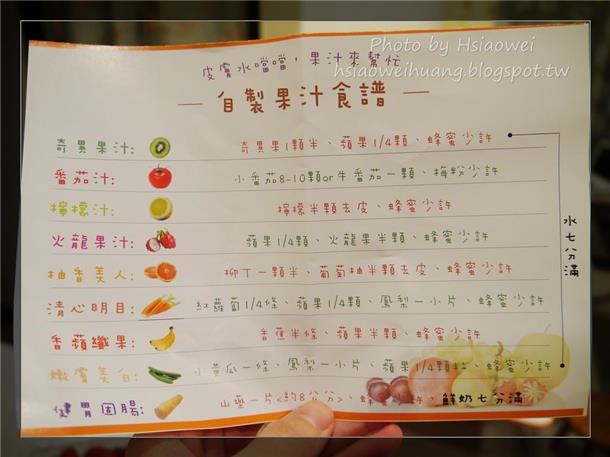 Photo by Hsiaowei
hsiaoweihuang.blogspot.tw
皮膚水噹噹，果汁來幫忙
— 自製果汁食譜 —
奇異果汁： 奇異果1顆半、蘋果1/4顆、蜂蜜少許
番茄汁： 小番茄8-10顆or牛番茄一顆、梅粉少許
檸檬汁： 檸檬半顆去皮、蜂蜜少許
火龍果汁： 蘋果1/4顆、火龍果半顆、蜂蜜少許
柚香美人： 柳丁一顆半、葡萄柚半顆去皮、蜂蜜少許
清心明目： 紅蘿蔔1/4條、蘋果1/4顆、鳳梨一小片、蜂蜜少許
香蘋纖果： 香蕉半條、蘋果半顆、蜂蜜少許
嫩膚美白： 小黃瓜一條、鳳梨一小片、蘋果1/4顆、蜂蜜少許
健胃固腸： 山藥一片<約8公分>、蜂蜜少許、鮮奶七分滿
水七分滿